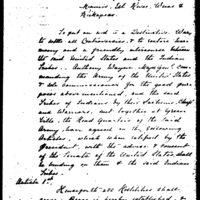 Miamis, Eel River, Weas &
Kickapoos.
To put an end to a Destructive War,
to settle all Controversies, & to restore har-
mony and a friendly intercourse between
the said United States and the Indian
Tribes – Anthony Wayne Major Genl com-
manding the Army of the United States
& sole commissioner for the good pur-
poses above mentioned, and the said
Tribes of Indians by their Sachems, Chiefs
and Warriors, met together at Green-
ville, the Head Quarters of the said
Army, have agreed on the following
Articles, which when ratified by the
President, with the advice & consent
of the Senate of the United States, shall
be binding on them & the said Indian
Tribes
Article 1st
Henceforth all Hostilities shall